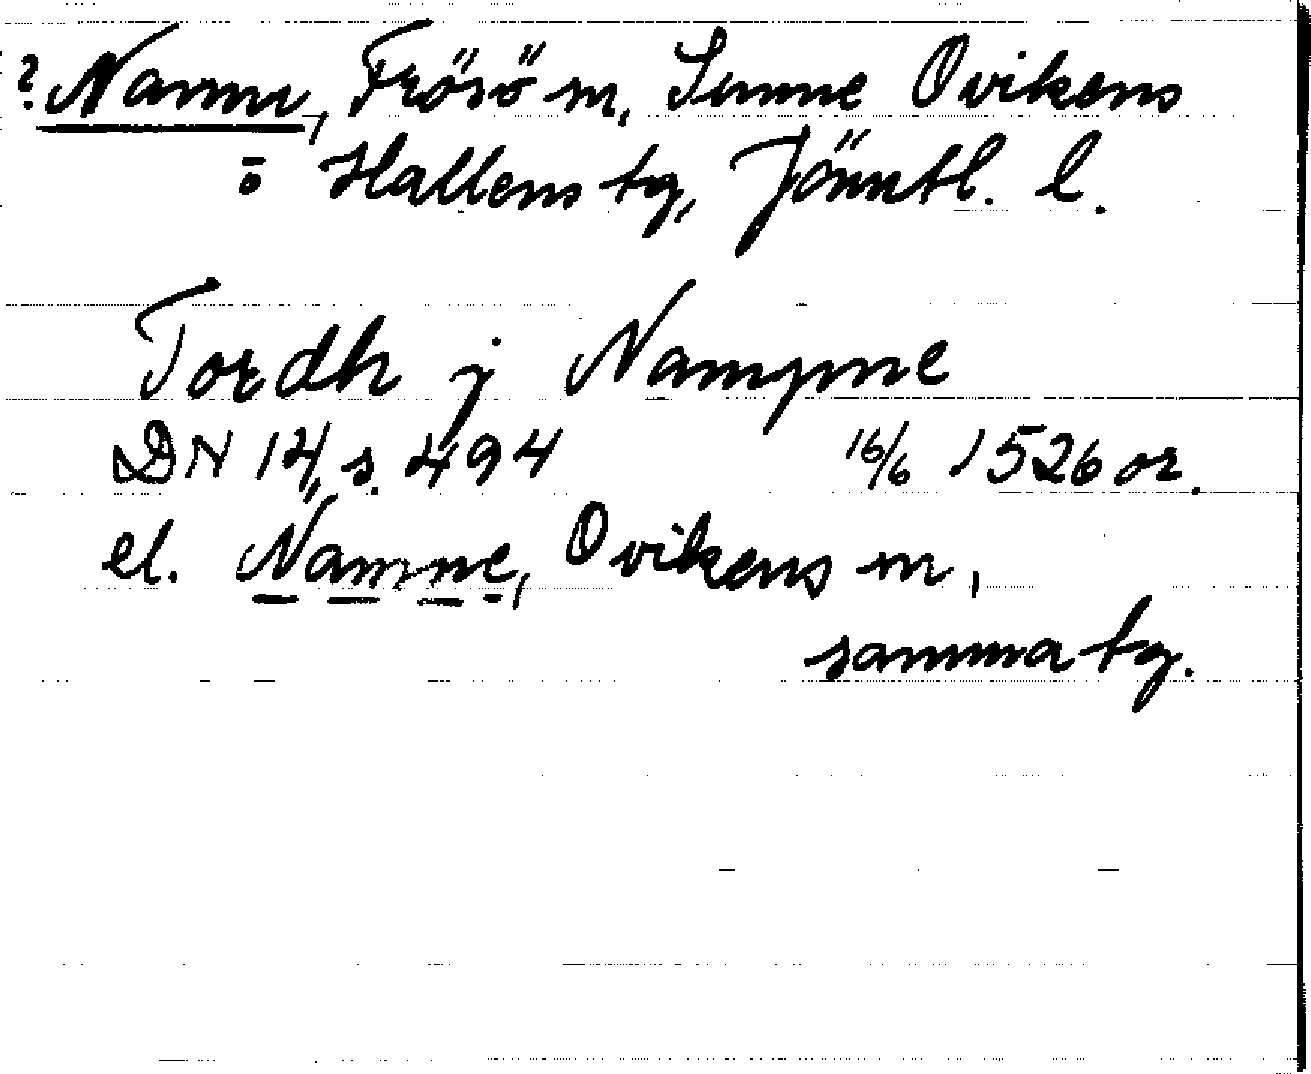 ? Namn, Frösö sn, Sunne Ovikens
o Hallens tg, Jämtl. l.
Tordh j Nampne
DN 14, s. 494 16/6 1526 or.
el. Namne, Ovikens sn,
samma tg.